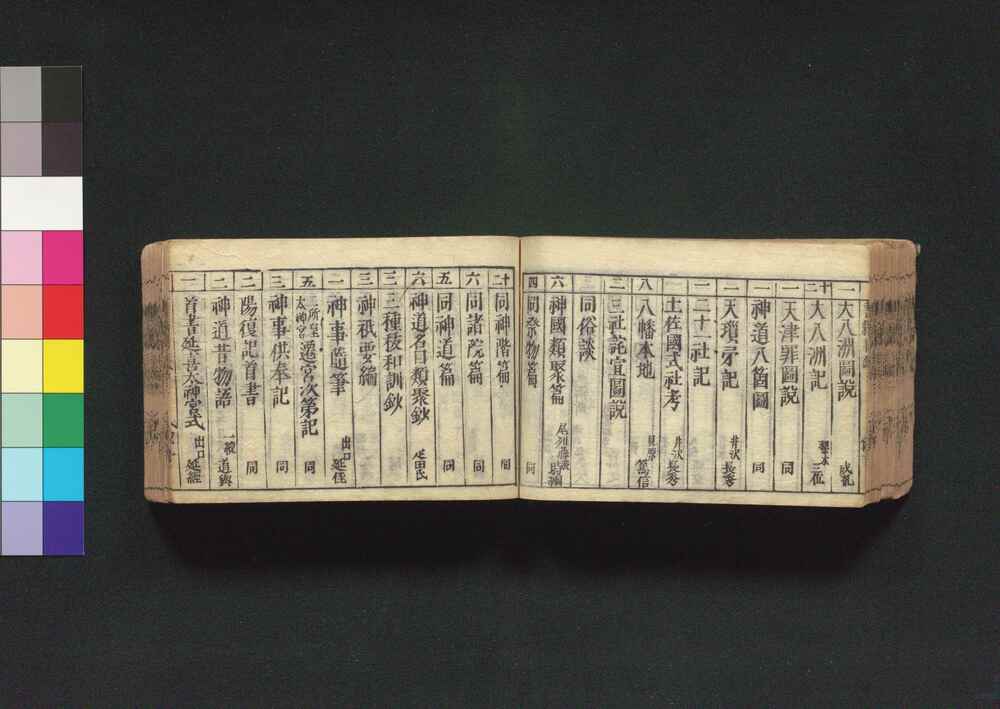 一 大八洲圖說 成乩
十二 大八洲記 三位
一 天津罪圖說 同
一 神道八箇圖 同
二 天瓊矛記 井沢 長秀
一 二十二社記
二 土佐國式社考 井沢 長秀
八 八幡本地 貝原 篤信
二 三社託宣圖說
同俗談
六 神國類聚篇
四 同祭物篇 同
十 同神階篇 同
六 同諸院篇 同
五 同神道篇 同
六 神道名目類聚鈔
三 三種秡和訓鈔
三 神祇要編
一 神事随筆 出口 延佳
五 二所皇太神宮遷宮次第記 同
三 神事供奉記 同
二 陽復記首書 同
二 神道昔物語 一般 道與
一 首書延喜太神宮式 出口 延經